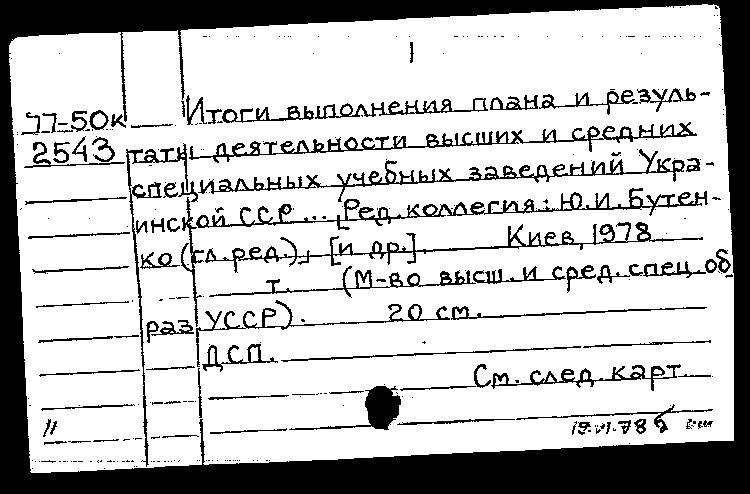 1
77-50к Итоги выполнения плана и резуль-
2543 таты деятельности высших и средних
специальных учебных заведений Укра-
инской ССР ... [Ред.коллегия: Ю.И.Бутен-
ко (гл.ред.), [и др.]. Киев, 1978
т. (М-во высш. и сред. спец. об
раз. УССР). 20 см.
ДСП.
См. след. карт.
11 19.VI.78